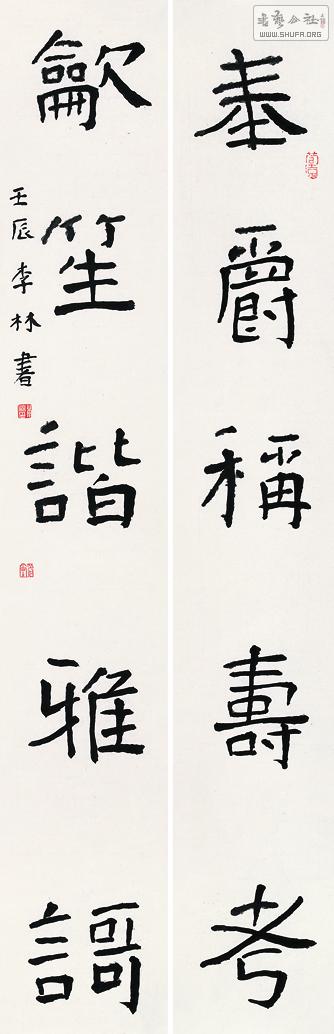 奉爵稱壽考
龡笙諧雅謌
壬辰李林書
书艺公社
WWW.SHUFA.ORG